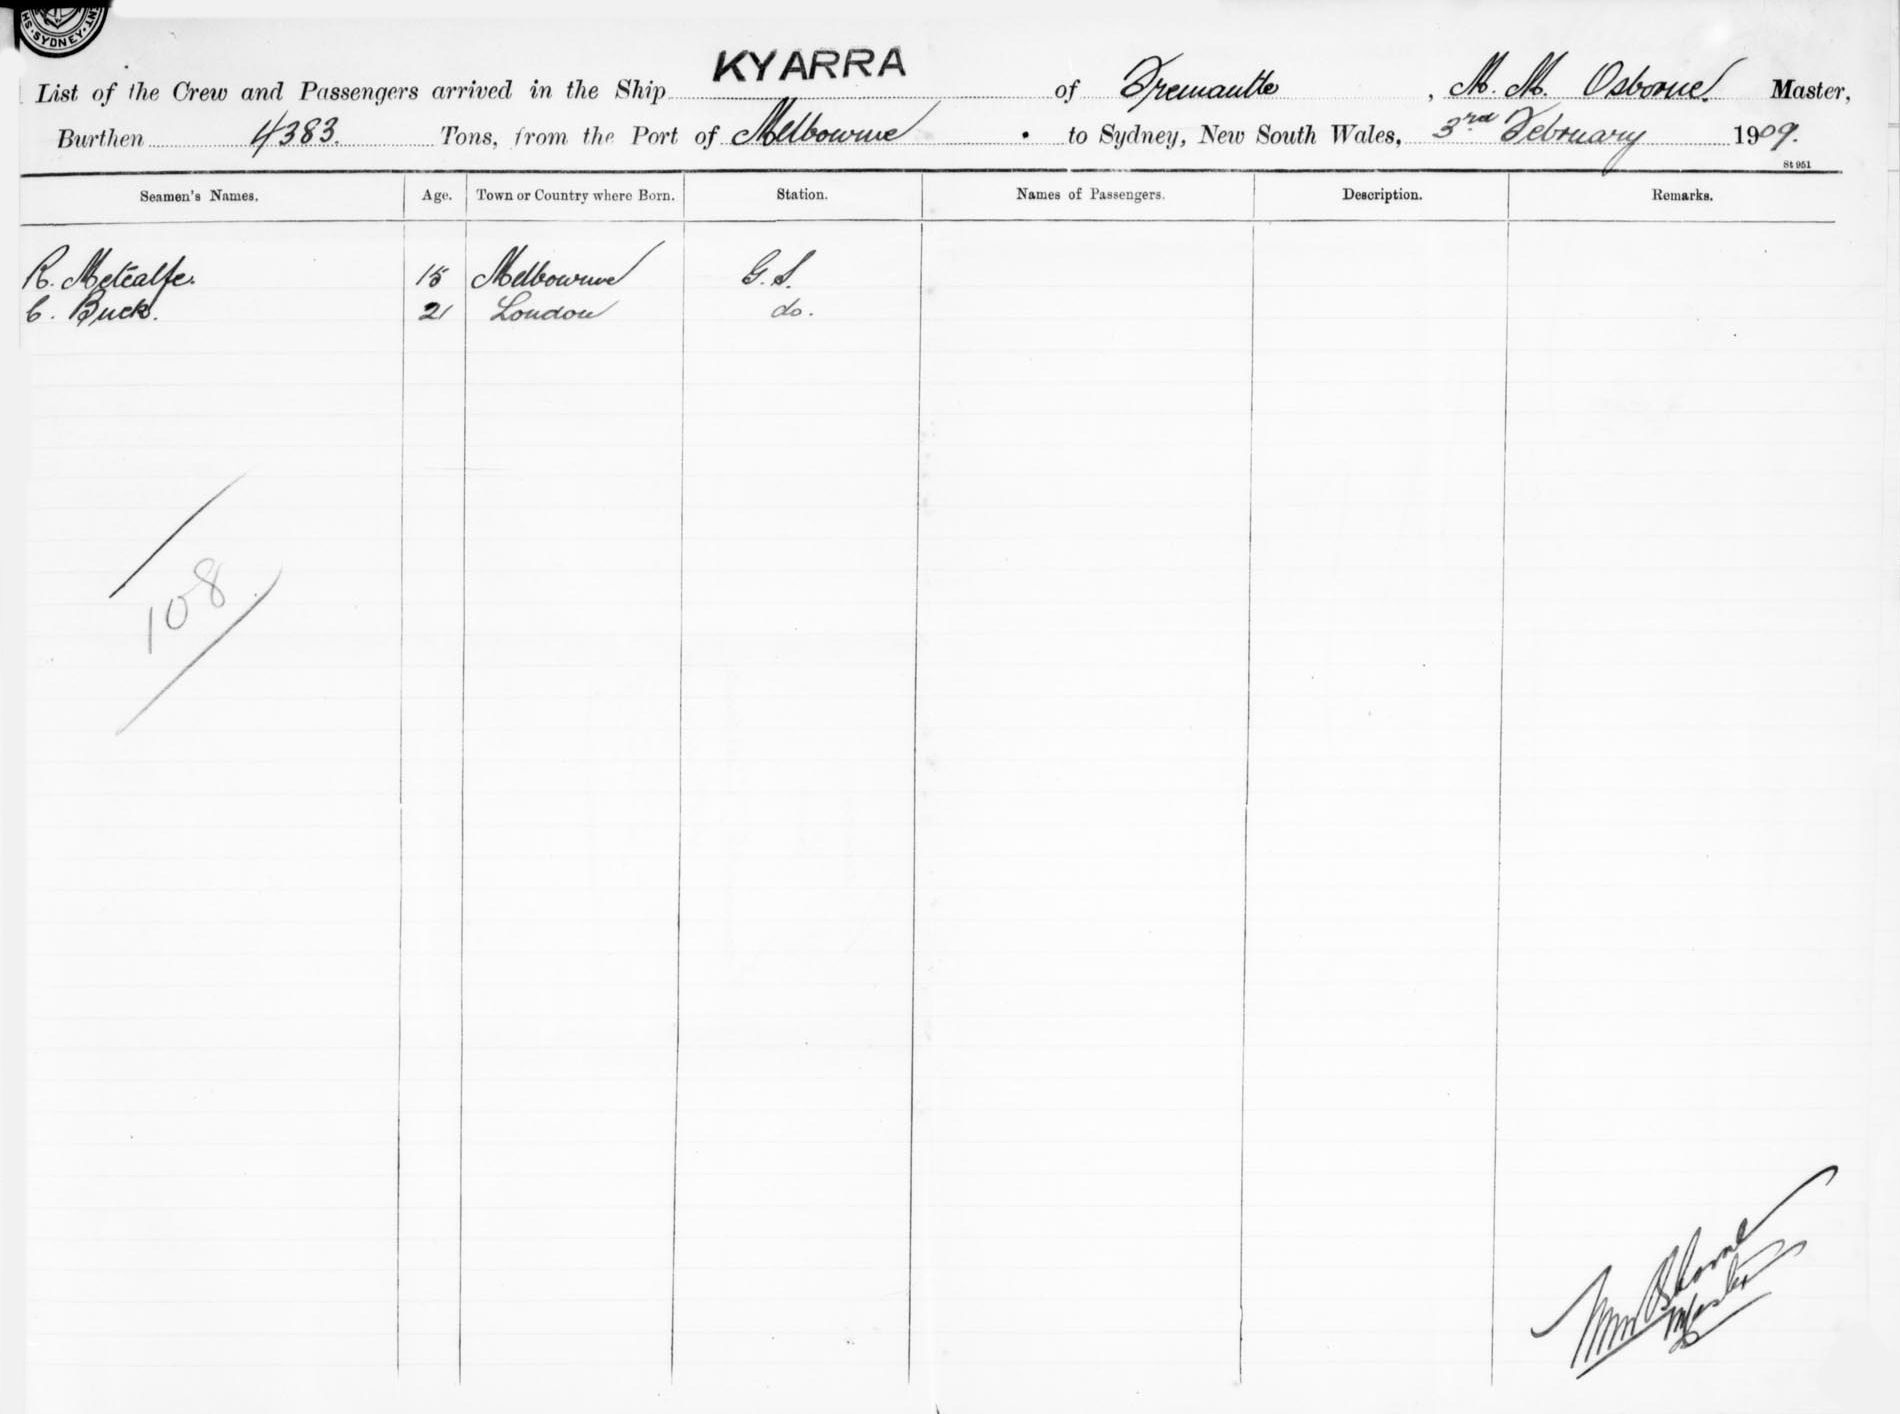 SYDNEY
List of the Crew and Passengers arrived in the Ship KYARRA of Fremantle, M. M. Osborne. Master,
Burthen 4383. Tons, from the Port of Melbourne to Sydney, New South Wales, 3rd February 1909.
St 951
Seamen's Names. Age. Town or Country where Born. Station. Names of Passengers. Description. Remarks.
R. Metcalfe. 15 Melbourne G. S.
C. Buck. 21 London do.
108
Osborne
Master